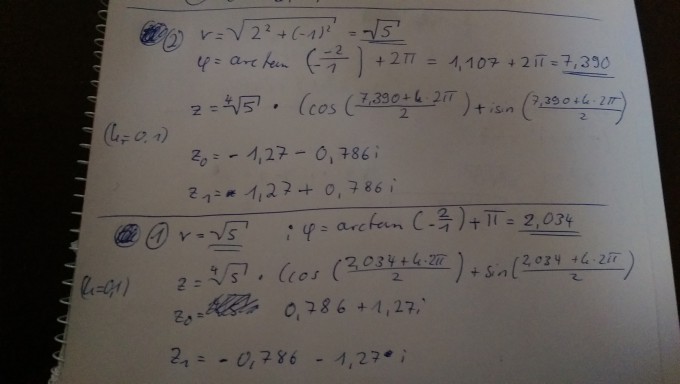 (2) r = √(2² + (-1)²) = √5
φ = arctan (-2/-1) + 2π = 1,107 + 2π = 7,390
z = ⁴√5 · (cos (7,390 + k·2π / 2) + i sin (7,390 + k·2π / 2)
(k = 0,1)
z₀ = - 1,27 - 0,786 i
z₁ = 1,27 + 0,786 i
(1) r = √5 ; φ = arctan (-2/1) + π = 2,034
z = ⁴√5 · (cos (2,034 + k·2π / 2) + sin (2,034 + k·2π / 2)
(k=0,1)
z₀ = 0,786 + 1,27 i
z₁ = - 0,786 - 1,27 · i